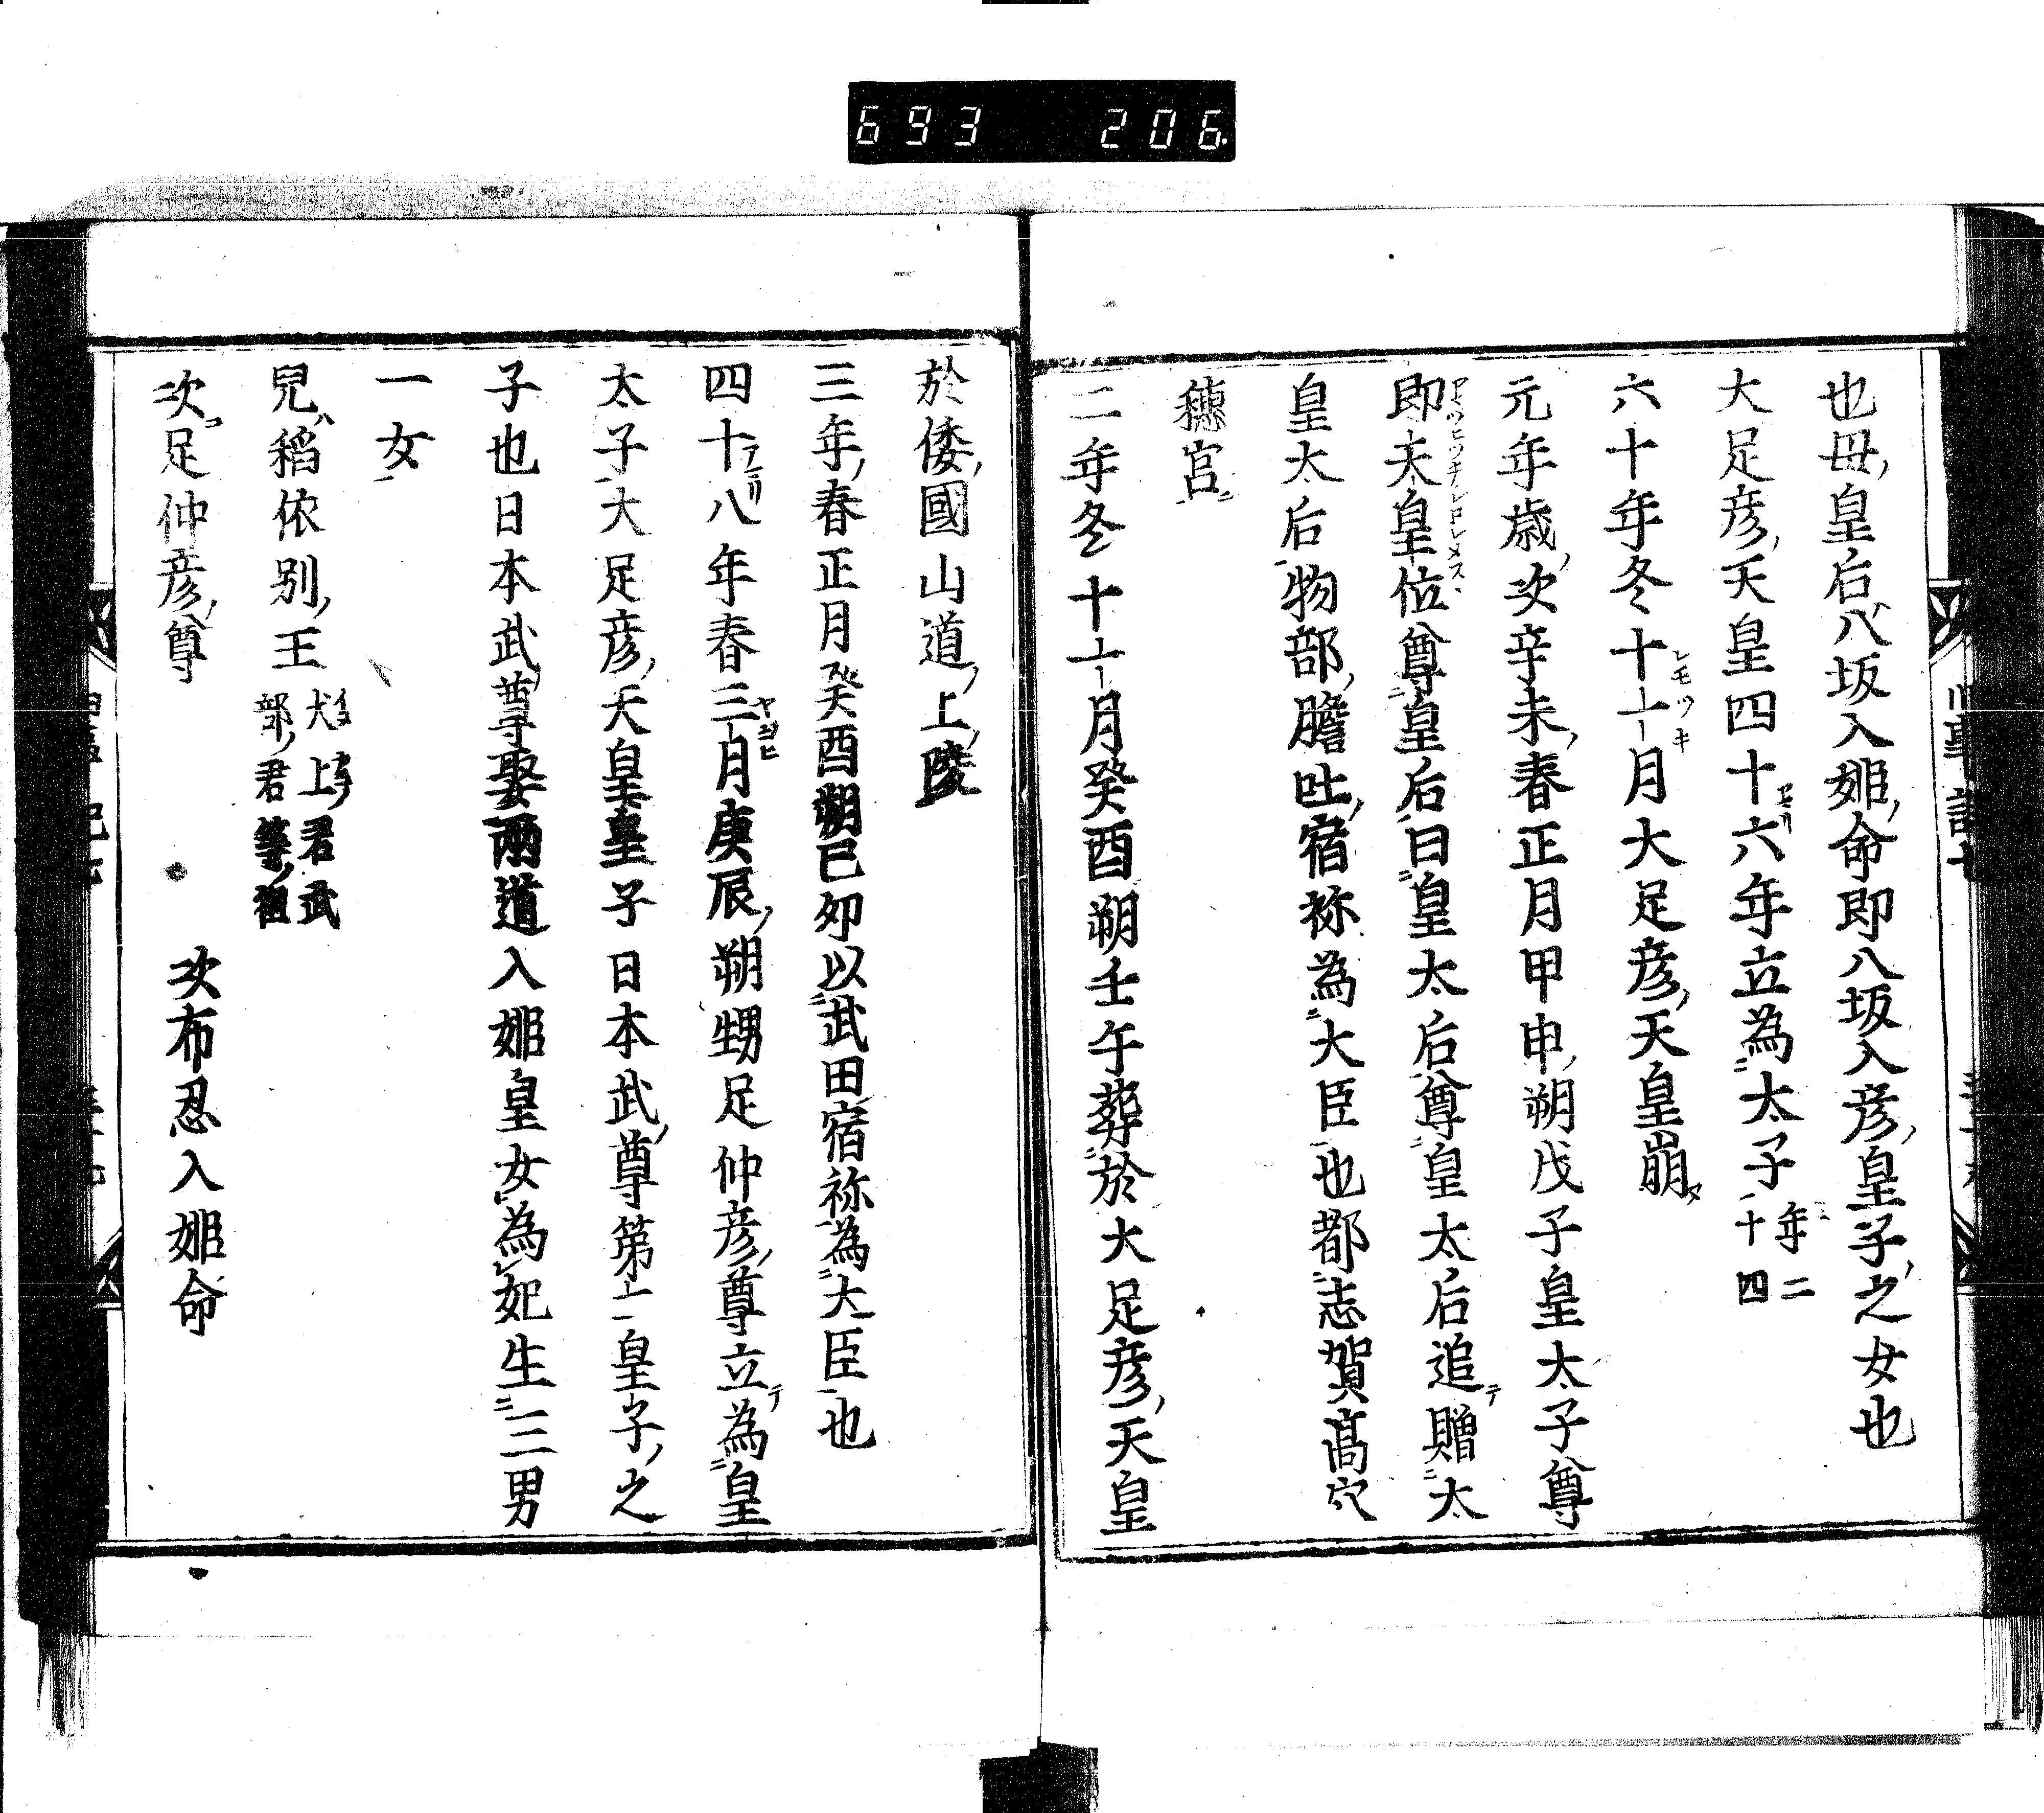 693 206
也母皇后八坂入姫命即八坂入彦皇子之女也
大足彦天皇四十六年立為太子年二十四
六十年冬十一月大足彦天皇崩
元年歳次辛未春正月甲申朔戊子皇太子尊
即天皇位尊皇后曰皇太后尊皇太后追贈太
皇太后物部膽咋宿祢為大臣也都志賀髙穴
穗宮
二年冬十一月癸酉朔壬午葬於大足彦天皇
於倭國山道上陵
三年春正月癸酉朔己卯以武田宿祢為大臣也
四十八年春三月庚辰朔甥足仲彦尊立為皇
太子大足彦天皇皇子日本武尊第二皇子之
子也日本武尊娶兩道入姫皇女為妃生三男
一女
兒稻依別王犬上君武部君等祖
次足仲彦尊 次布忍入姫命